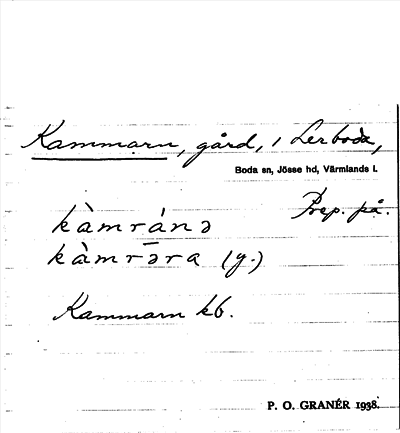 Kammarn, gård, i Lerboda,
Boda sn, Jösse hd, Värmlands l.
Prep. på.
kàmránə
kàmrəra (y.)
Kammarn kb.
P. O. GRANÉR 1938.